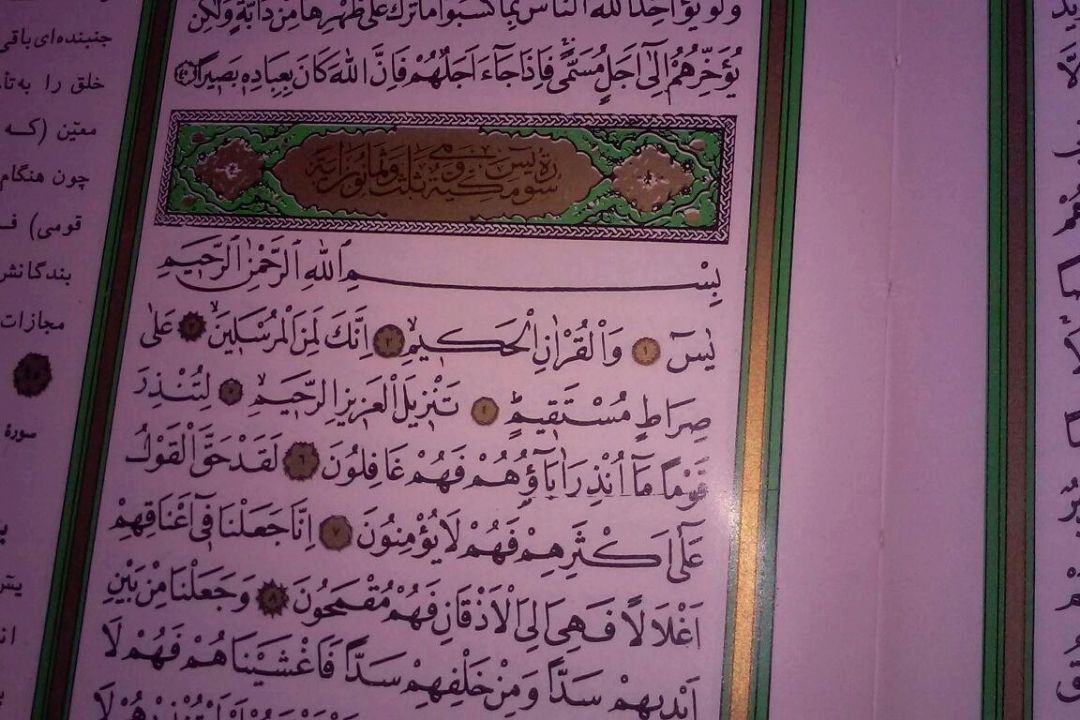 وَلَوْ يُؤَاخِذُ اللّٰهُ النَّاسَ بِمَا كَسَبُوا مَا تَرَكَ عَلٰى ظَهْرِهَا مِنْ دَابَّةٍ وَلٰكِنْ
يُؤَخِّرُهُمْ اِلٰٓى اَجَلٍ مُسَمًّى فَاِذَا جَآءَ اَجَلُهُمْ فَاِنَّ اللّٰهَ كَانَ بِعِبَادِهٖ بَصِيرًا ٤٥
سورة يس مكية وهي ثلث وثمانون اية
بِسْمِ اللّٰهِ الرَّحْمٰنِ الرَّحِيمِ
يٰسٓ ١ وَالْقُرْاٰنِ الْحَكِيمِ ٢ اِنَّكَ لَمِنَ الْمُرْسَلِينَ ٣ عَلٰى
صِرَاطٍ مُسْتَقِيمٍ ٤ تَنْزِيلَ الْعَزِيزِ الرَّحِيمِ ٥ لِتُنْذِرَ
قَوْمًا مَٓا اُنْذِرَ اٰبَٓاؤُ۬هُمْ فَهُمْ غَافِلُونَ ٦ لَقَدْ حَقَّ الْقَوْلُ
عَلٰٓى اَكْثَرِهِمْ فَهُمْ لَا يُؤْمِنُونَ ٧ اِنَّا جَعَلْنَا فٓى اَعْنَاقِهِمْ
اَغْلَالًا فَهِىَ اِلَى الْاَذْقَانِ فَهُمْ مُقْمَحُونَ ٨ وَجَعَلْنَا مِنْ بَيْنِ
اَيْدِيهِمْ سَدًّا وَمِنْ خَلْفِهِمْ سَدًّا فَاَغْشَيْنَاهُمْ فَهُمْ لَا
جنبنده‌ای باقی
خلق را به‌تأ
معیّن (که
چون هنگام
قومی) ف
بندگانش
مجازات
٤٥
سورهٔ